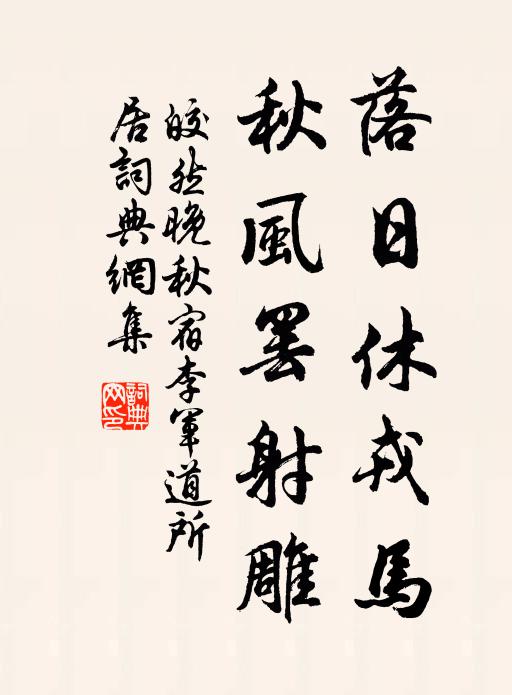 落日休戎馬
秋風罷射雕
皎然晚秋宿李軍道所
居詞典網集
詞典
网印